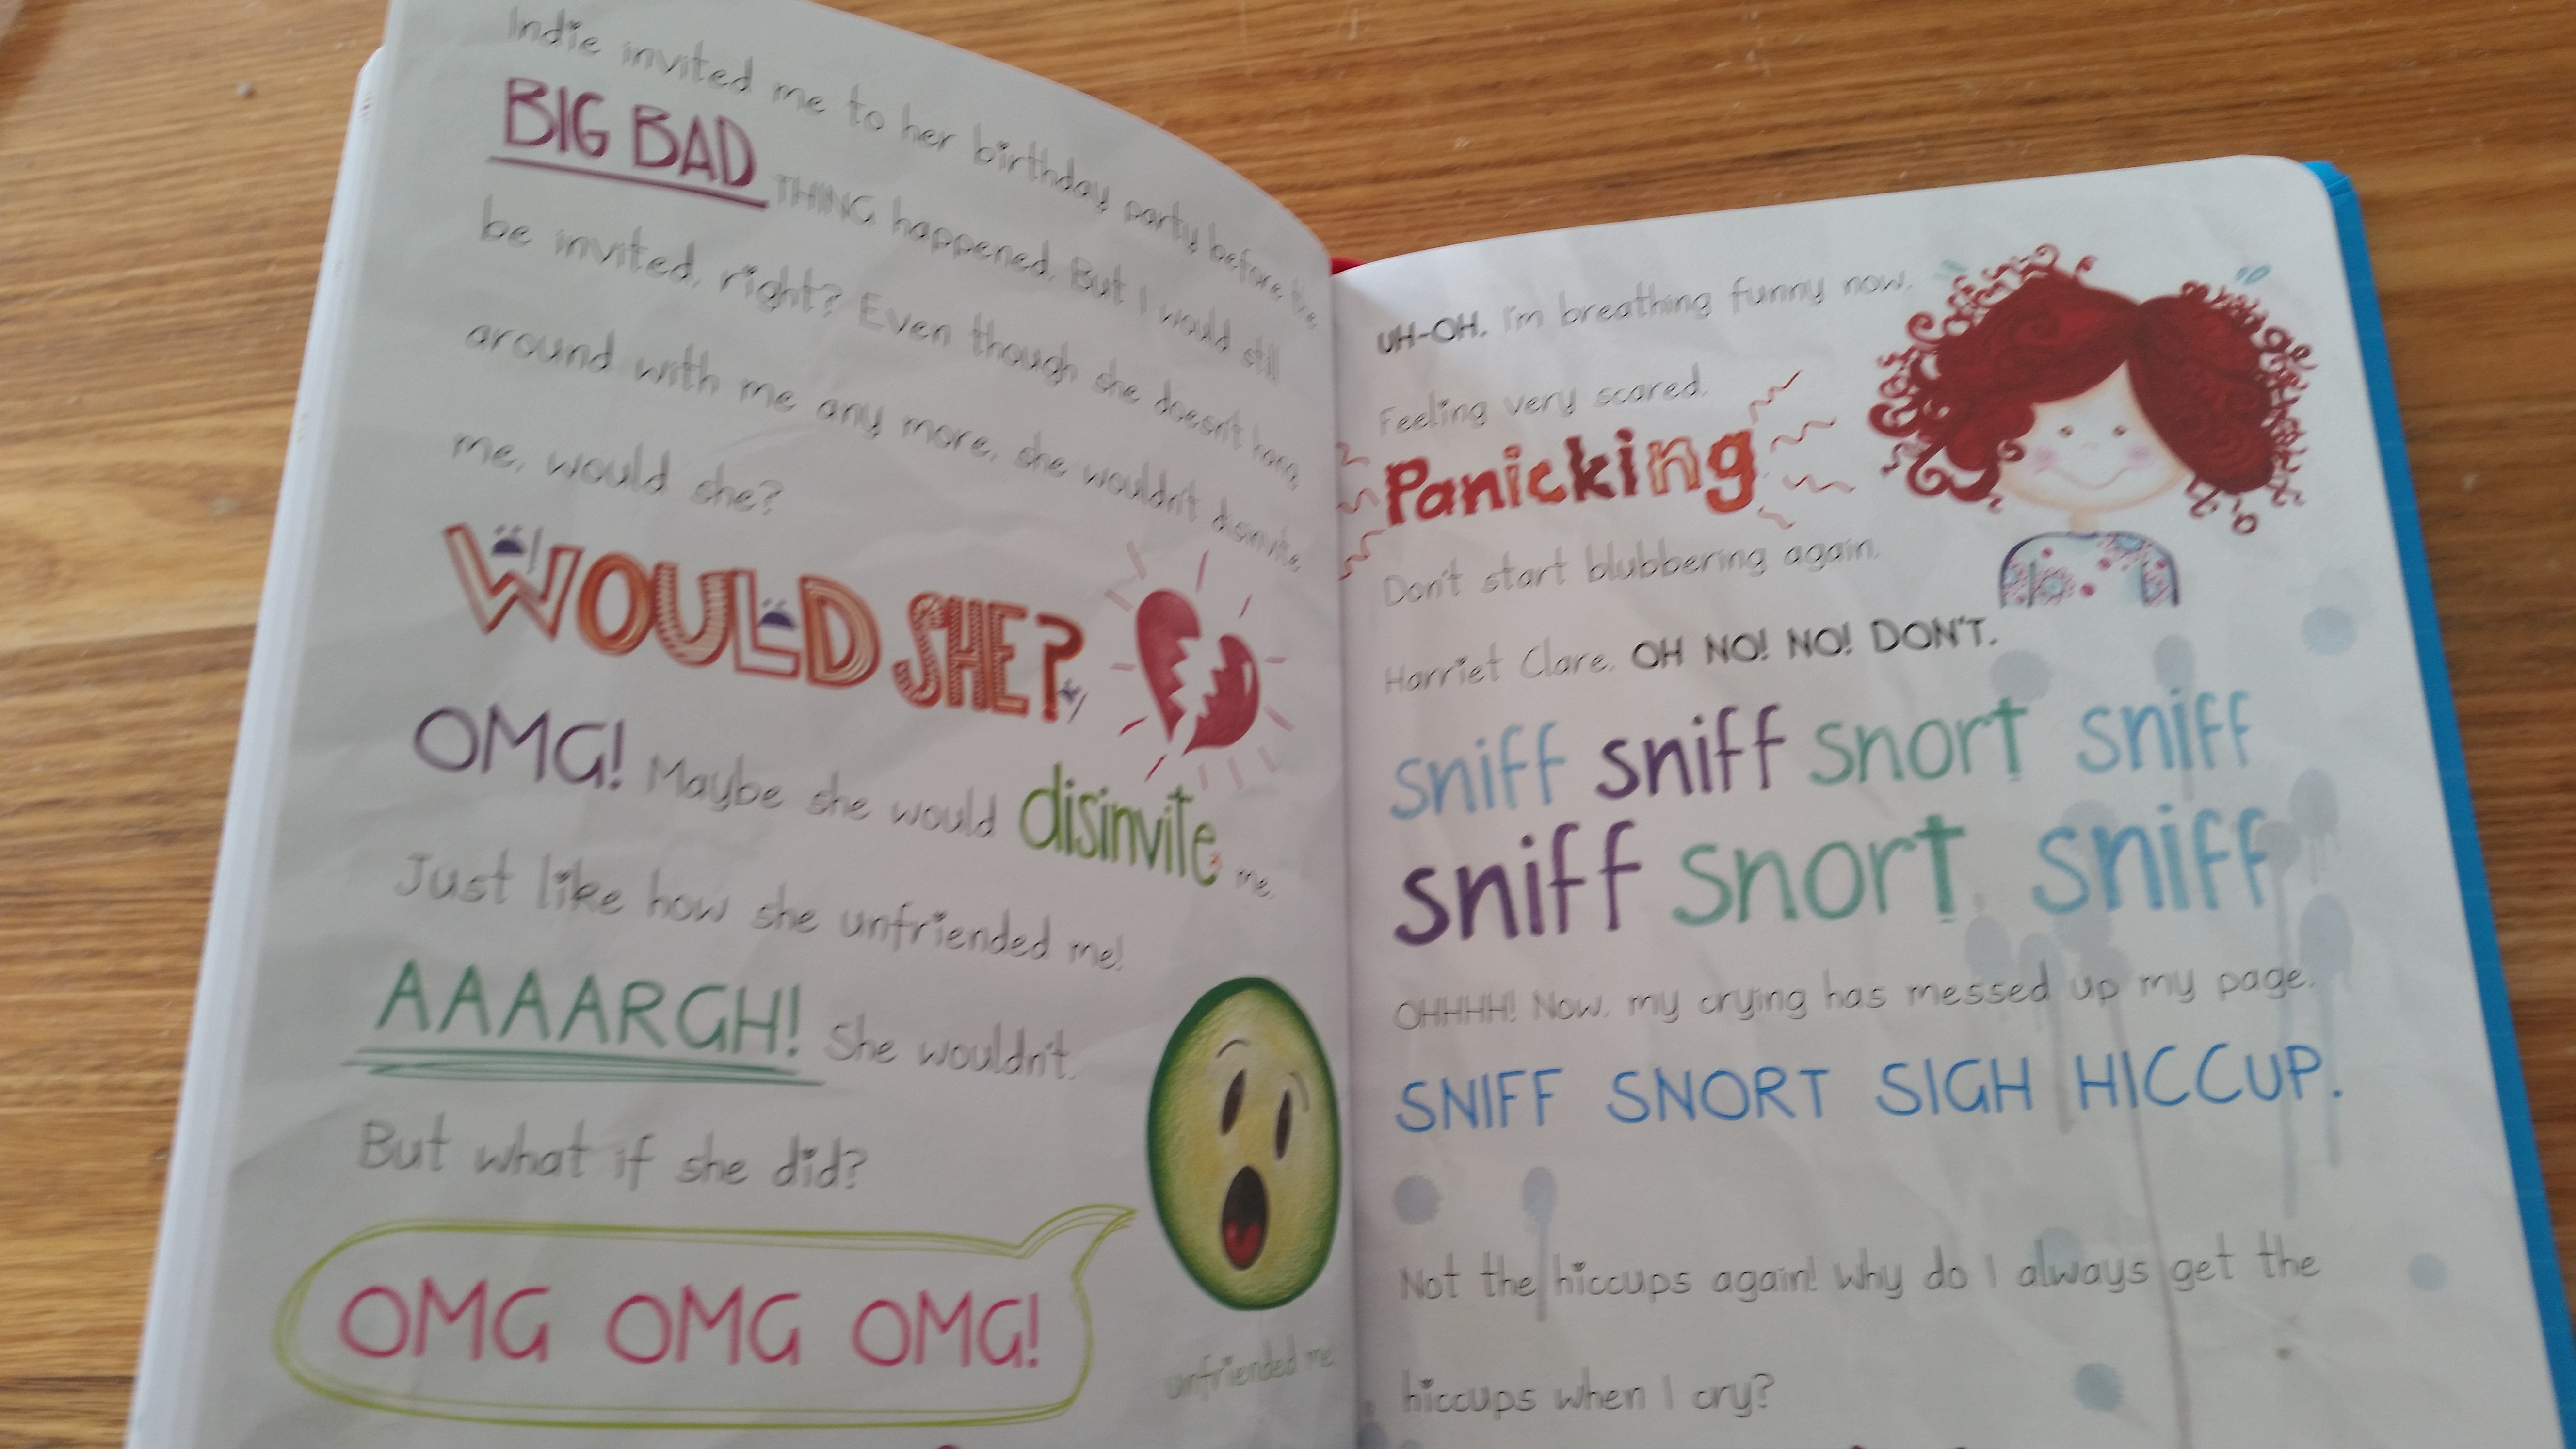 Indie invited me to her birthday party before the
BIG BAD THING happened. But I would still
be invited, right? Even though she doesn't hang
around with me any more, she wouldn't disinvite
me, would she?
WOULD SHE?
OMG! Maybe she would disinvite me.
Just like how she unfriended me!
AAAARGH! She wouldn't.
But what if she did?
OMG OMG OMG!
unfriended me!
UH-OH. I'm breathing funny now.
Feeling very scared.
Panicking
Don't start blubbering again,
Harriet Clare. OH NO! NO! DON'T.
sniff sniff snort sniff
sniff snort sniff
OHHHH! Now, my crying has messed up my page.
SNIFF SNORT SIGH HICCUP.
Not the hiccups again! Why do I always get the
hiccups when I cry?